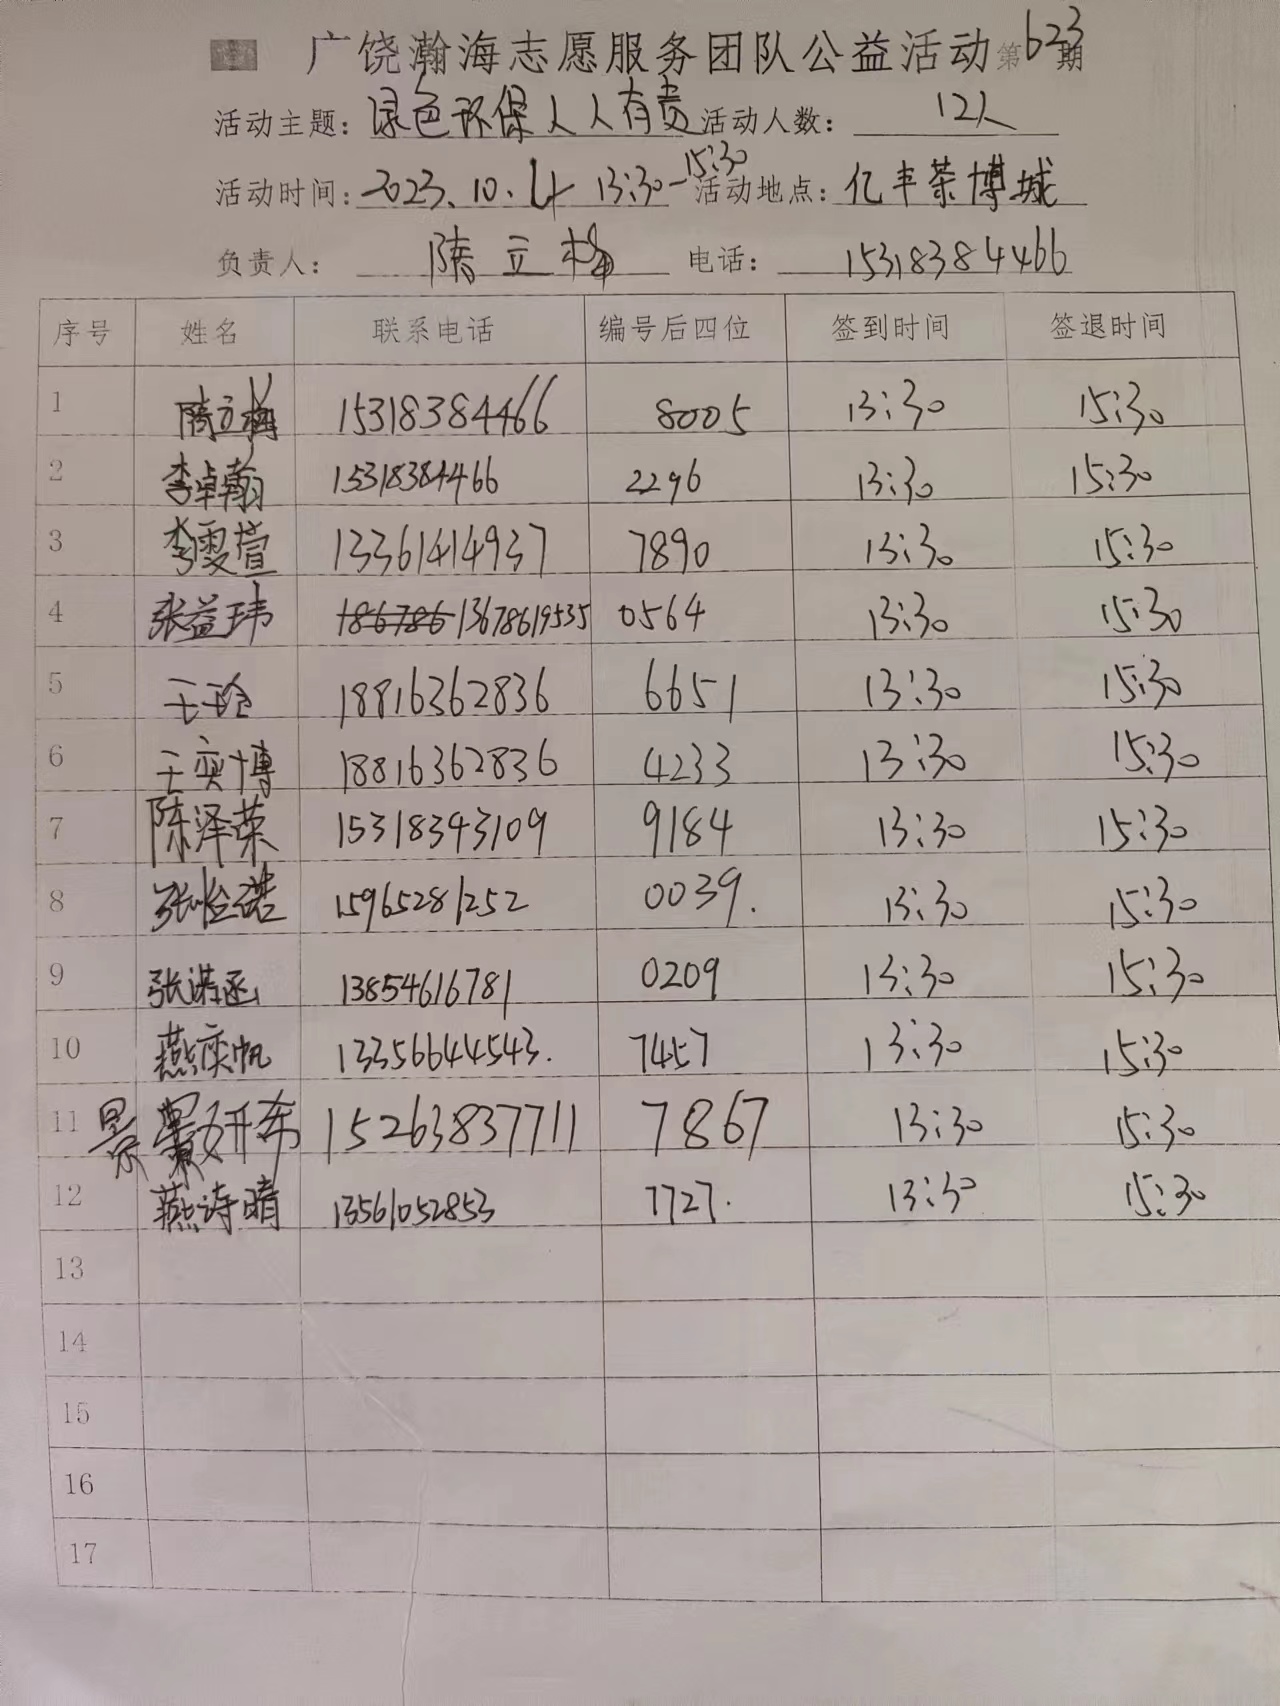 广饶瀚海志愿服务团队公益活动第623期
活动主题: 绿色环保人人有责 活动人数: 12人
活动时间: 2023.10.4 13:30-15:30 活动地点: 亿丰荣博城
负责人: 陈立梅 电话: 15318384466
序号 姓名 联系电话 编号后四位 签到时间 签退时间
1 陈立梅 15318384466 8005 13:30 15:30
2 李卓翰 15318384466 2296 13:30 15:30
3 李雯萱 13361414937 7890 13:30 15:30
4 张益玮 186786 13678619535 0564 13:30 15:30
5 王玲 18816362836 6651 13:30 15:30
6 王奕博 18816362836 4233 13:30 15:30
7 陈泽荣 15318343109 9184 13:30 15:30
8 张怡诺 15965281252 0039. 13:30 15:30
9 张湛函 13854616781 0209 13:30 15:30
10 燕奕帆 13356644543. 7457 13:30 15:30
11 景妍希 15263837711 7867 13:30 15:30
12 燕诗晴 13561052853 7727. 13:30 15:30
13
14
15
16
17